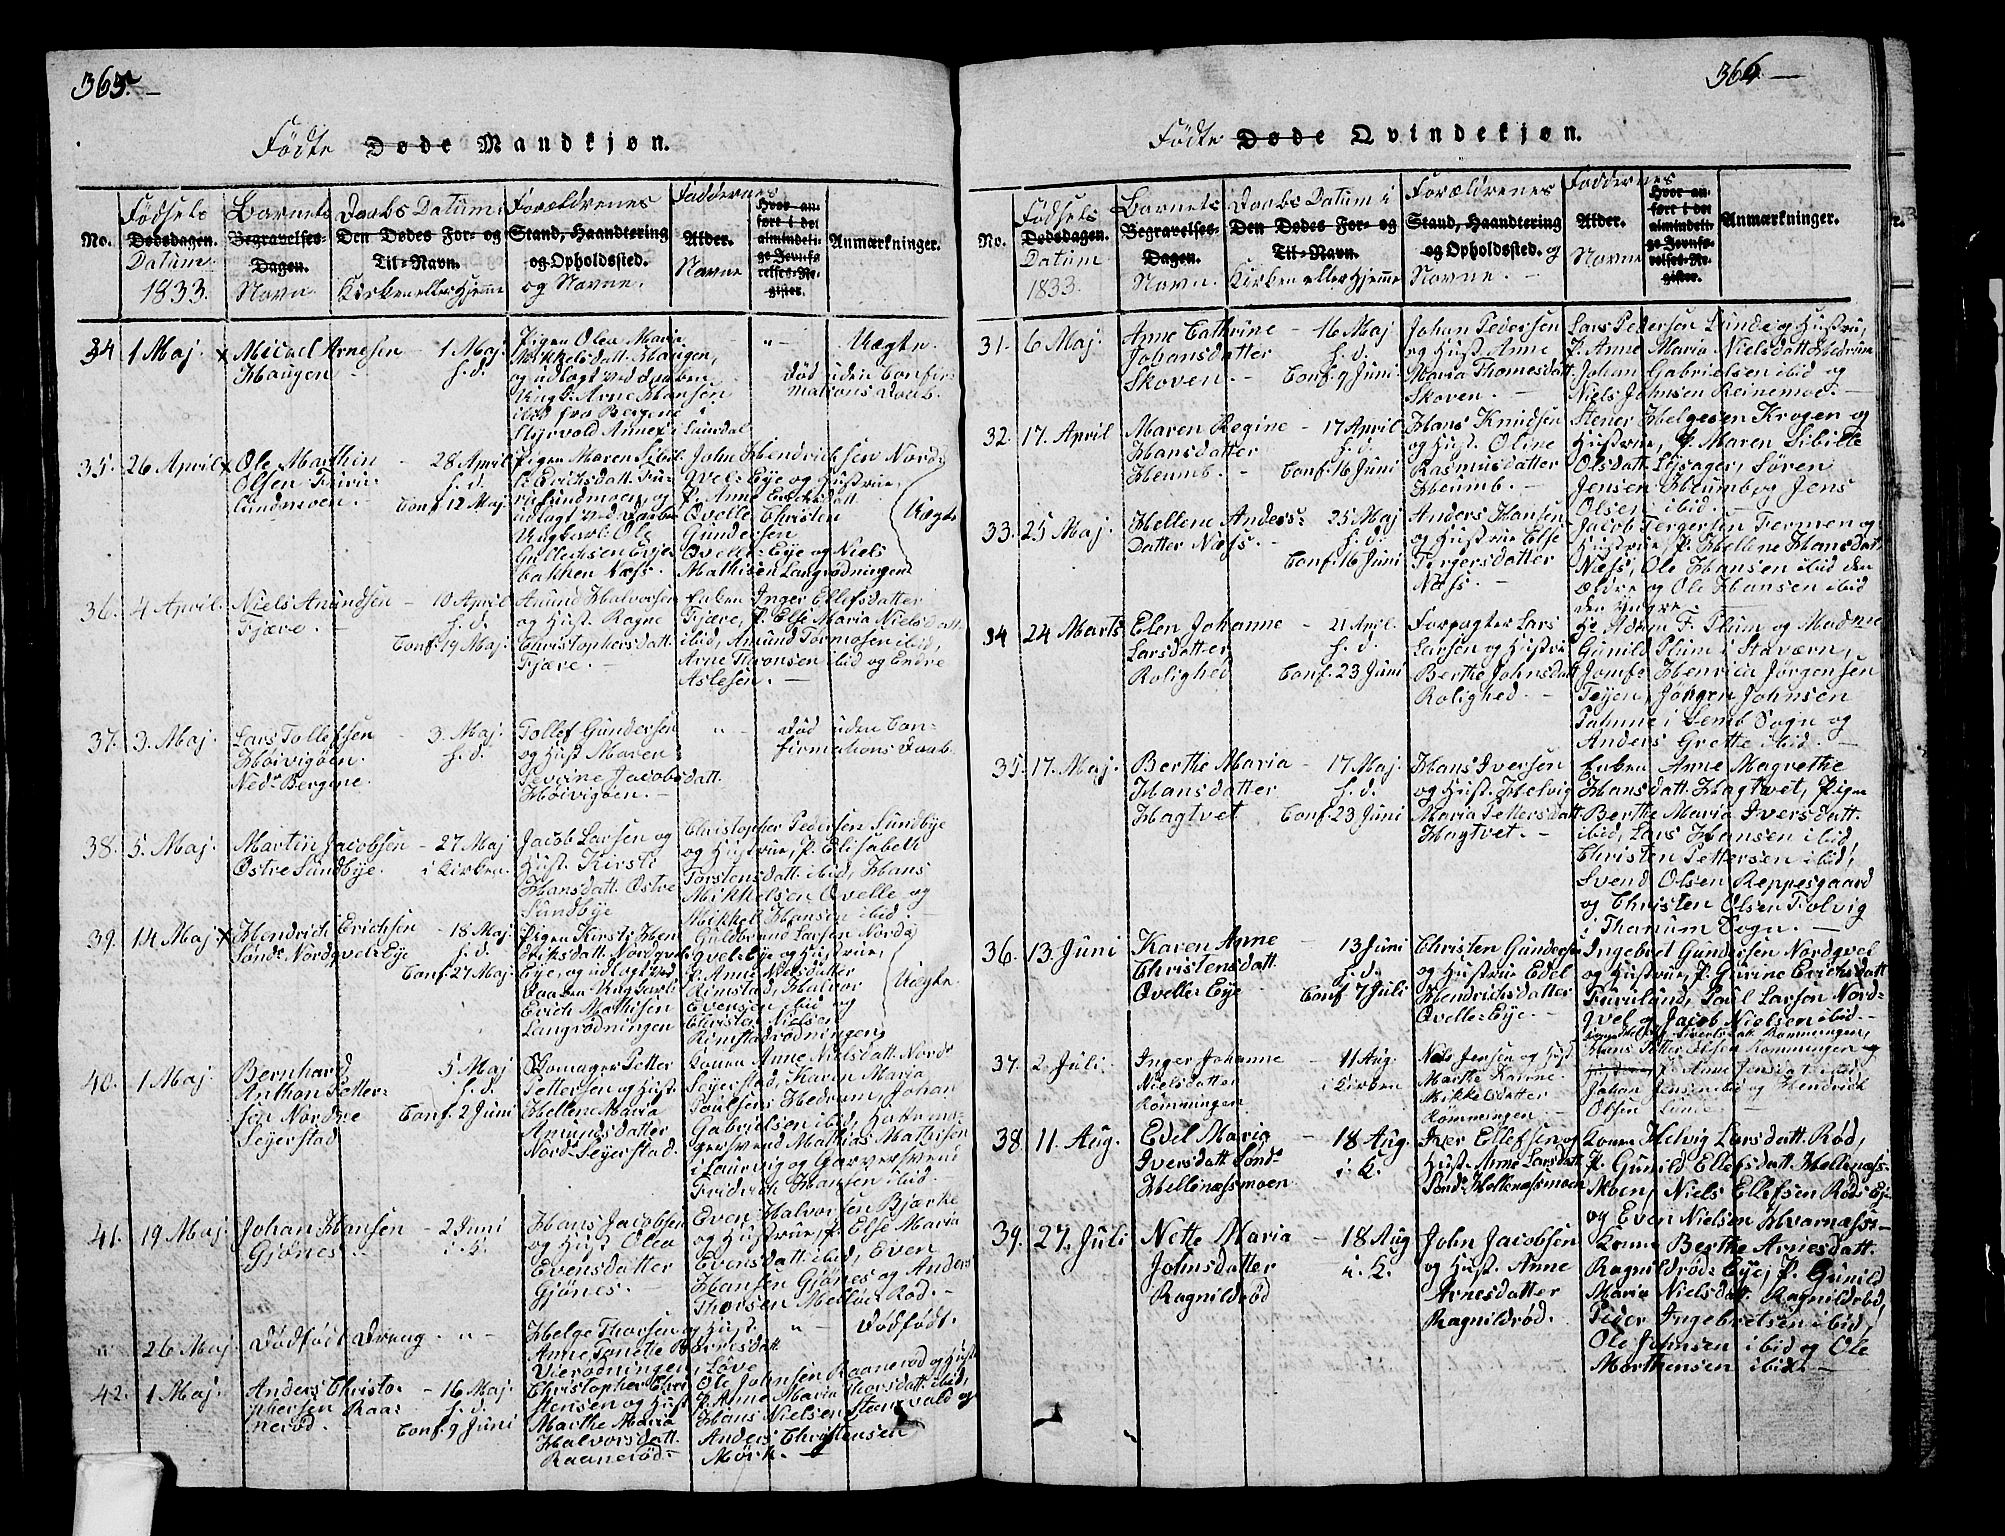 365.
Fødte Døde Mandkjøn.
No.
Fødsels
Dødsdagen.
Datum
1833.
Barnets
Begravelses-
Dagen.
Navn.
Daabs Datum i
Den Dødes For- og
Til-Navn.
Kirken eller Hjemme
Forældrenes
Stand, Haandtering
og Opholdssted.
og Navne.
Faddernes
Alder.
Navne
Hvor an-
ført i det
almindeli-
ge Jevnfø-
relses-Re-
gister.
Anmærkninger.
34 1 Maj.
Micael Arnesen
Haugen
1 Maj
h. d.
Pigen Olea Maria
Mikkelsdatt. Haugen,
og udlagt ved daaben
Ungk. Arne Hansen
ibid fra Bergene i
Styrvold Annex i Laurdal
Uægte.
Død uden Confir-
mations Daab.
35. 26 April
Ole Marthin
Olsen Furu-
lundmoen.
28 April
h. d.
Conf. 12 Maj
Pigen Maren Sibil-
le Erichsdatt. Fu-
rulundmoen og
udlagt ved Daaben
Ungkarl Ole
Gullichsen Eeje-
bakken Næss.
John Hendrichsen Nordq-
vel-Eye og Hustrue,
P. Anne Erichsdatt.
Ovelle, Christen
Gundersen
Ovelle-Eye og Niels
Mathisen Langrødningen
Uægte
36. 4 April.
Niels Amundsen
Fjære.
10 April
h. d.
Conf. 19 Maj.
Amund Halvorsen
og Hust. Ragne
Christophersdatt.
Fjære.
Enken Inger Ellefsdatter
Fjære, P. Else Maria Nielsdatt.
ibid, Amund Tormosen ibid,
Arne Thronsen ibid og Endre
Aslesen.
37. 3. Maj.
Lars Tollefsen
Høivigøen
Ned. Bergene.
3. Maj
h. d.
Tollef Gundersen
og Hust Maren
Severine Jacobsdatt.
Høivigøen.
Død uden Con-
firmations Daab
38. 5. Maj.
Martin Jacobsen
Østre Sundbye.
27 Maj
i Kirken
Jacob Larsen og
Hust. Kirsti
Hansdatt. Østre
Sundbye
Christopher Pedersen Sundbye
og Hustrue, P. Elisabeth
Torstensdatt. ibid, Hans
Mikkelsen Ovelle og
Mikkel Hansen ibid.
39. 14 Maj
Hendrich Erichsen
Sønd. Nordqvel-Eye
18 Maj
h. d.
Conf. 27 Maj.
Pigen Kirsti Hen-
driksdatt. Nordqvel-
Eye, og udlagt ved
Daaben Ungkarl
Erich Mathisen
Langrødningen
Guldbrand Larsen Nordq-
qvel-Eye og Hustrue,
P. Anne Nielsdatter
Rimstad, Halvor
Evensen ibid og
Christen Nielsen
Rimstadrødningen
Uægte.
40. 1 Maj
Bernhard
Anthon Petter-
sen Nordre
Seyerstad
5 Maj
h. d.
Conf. 2 Juni
Skomager Petter
Pettersen og Hust
Hellene Maria
Amundsdatter
Nord. Seyerstad.
Konen Anne Nielsdatt. Nordr.
Seyerstad, Karen Maria
Poulsens Hedrum, Johan
Gabrielsen ibid, Hattema-
gersvend Mathias Mathisen
i Laurvig og Garversvend
Fridrich Hansen ibid.
41. 19 Maj.
Johan Hansen
Gjønes
2 Juni
i K.
Hans Jacobsen
og Hust Olea
Evensdatter
Gjønes.
Even Halvorsen Bjærke
og Hustrue, P. Else Maria
Evensdatt. ibid, Even
Hansen Gjønes og Anders
Thorsen Melløe Rød.
26 Maj.
Dødfødt Dreng
Helge Thorsen og Hust.
Anne Tonette Børresdatt
Vierødningen i Løve
Dødfødt.
42. 1 Maj.
Anders Christo-
phersen Raa-
nerød.
16 Maj.
h. d.
Conf. 9 Juni
Christopher Chri-
stensen og Hust
Marthe Maria
Halvorsdatt.
Raanerød.
Ole Johnsen Raanerød og Hust
P. Anne Maria Thorsdatt. ibid,
Hans Nielsen Steensvald og
Anders Christensen
Mørk.
366.
Fødte Døde Qvindekjøn.
No.
Fødsels
Dødsdagen.
Datum
1833.
Barnets
Begravelses-
Dagen.
Navn.
Daabs Datum i
Den Dødes For- og
Til-Navn.
Kirken eller Hjemme
Forældrenes
Stand, Haandtering
og Opholdssted. og
Navne.
Faddernes
Alder.
Navne
Hvor an-
ført i det
almindeli-
ge Jevnfø-
relses-Re-
gister.
Anmærkninger.
31. 6 Maj.
Anne Cathrine
Johansdatter
Skoven.
16 Maj
h. d.
Conf. 9 Juni
Johan Pedersen
og Hust Anne
Maria Thomesdatt.
Skoven.
Lars Pedersen Lunde og Hustru,
P. Anne Maria Nielsdatt. Hedrum
Johan Gabrielsen ibid og
Niels Johnsen Reinemoe.
32. 17. April
Maren Regine
Hansdatter
Heumb.
17 April
h. d.
Conf. 16 Juni
Hans Knudsen
og Hust. Oline
Rasmusdatter
Heumb.
Stener Helgesen Krogen og
Hustrue, P. Maren Sibille
Olsdatt. Lysager, Søren
Jensen Heumb og Jens
Olsen ibid.
33. 25 Maj.
Hellene Anders-
Datter Næss.
25 Maj
h. d.
Conf. 16 Juni
Anders Hansen
og Hustrue Else
Tergersdatter
Næss.
Jacob Tergersen Fermen og
Hustrue, P. Hellene Hansdatt.
Næss, Ole Hansen ibid den
ældre og Ole Hansen ibid
den yngre.
34 24 Marts
Elen Johanne
Larsdatter
Rolighed
21 April
h. d.
Conf. 23 Juni
Forpagter Lars
Larsen og Hustru
Berthe Johnsdatt
Rolighed.
Hr. Adam F. Plum og Madme
Gunild Plum i Staværn,
Jomfr. Henrica Jørgensen
Teyen, Jørgen Johnsen
Pamme i Semb Sogn og
Anders Grette ibid.
35. 17. Maj.
Berthe Maria
Hansdatter
Hagtvet
17 Maj.
h. d.
Conf. 23 Juni
Hans Iversen
og Hust. Helvig
Maria Pettersdatt.
Hagtvet.
Enken Anne Magrethe
Hansdatt. Hagtvet, Pigen
Berthe Maria Iversdatt.
ibid, Lars Hansen ibid
Christen Pettersen ibid,
Svend Olsen Reppesgaard
og Christen Olsen Folvig
i Thanum Sogn.
36. 13 Juni
Karen Anne
Christensdatt.
Ovelle-Eye
13 Juni
h. d.
Conf 7 Juli
Christen Gundersen
og Hustrue Edel
Hendrichsdatter
Ovelle-Eye.
Ingebret Gundersen Nordqvel
og Hustrue, P. Gurine Erichsdatt
Furulund, Poul Larsen Nord-
qvel og Jacob Nielsen ibid.
37. 2 Juli.
Inger Johanne
Nielsdatter
Rømmingen
11 Aug.
i Kirken
Niels Jensen og Hust
Marthe Karine
Mikkelsdatter
Rømmingen.
Hans Petter Ibsen Rømmingen og
P. Anne Jensdatt ibid,
Johan Jensen ibid og Hendrich
Olsen Lunde
38. 11. Aug.
Edel Maria
Iversdatt. Sønd.
Hellenæssmoen
18 Aug.
i K.
Iver Ellefsen og
Hust. Anne Larsdatt
Sønd. Hellenæssmoen
Konen Helvig Larsdatt. Rød,
P. Gunild Ellefsdatt. Hellenæss-
Moen, Niels Ellefsen Røds Eje
og Even Nielsen Hvarnæss.
39. 27. Juli
Nette Maria
Johnsdatter
Ragnildrød
18 Aug
i K.
John Jacobsen
og Hust. Anne
Arnesdatter
Ragnildrød.
Konen Berthe Arnesdatt.
Ragnildrøds Eye, P. Gunild
Maria Nielsdatt. Ragnildrød,
Peder Ingebretsen ibid,
Ole Johnsen ibid og Ole
Morthensen ibid.